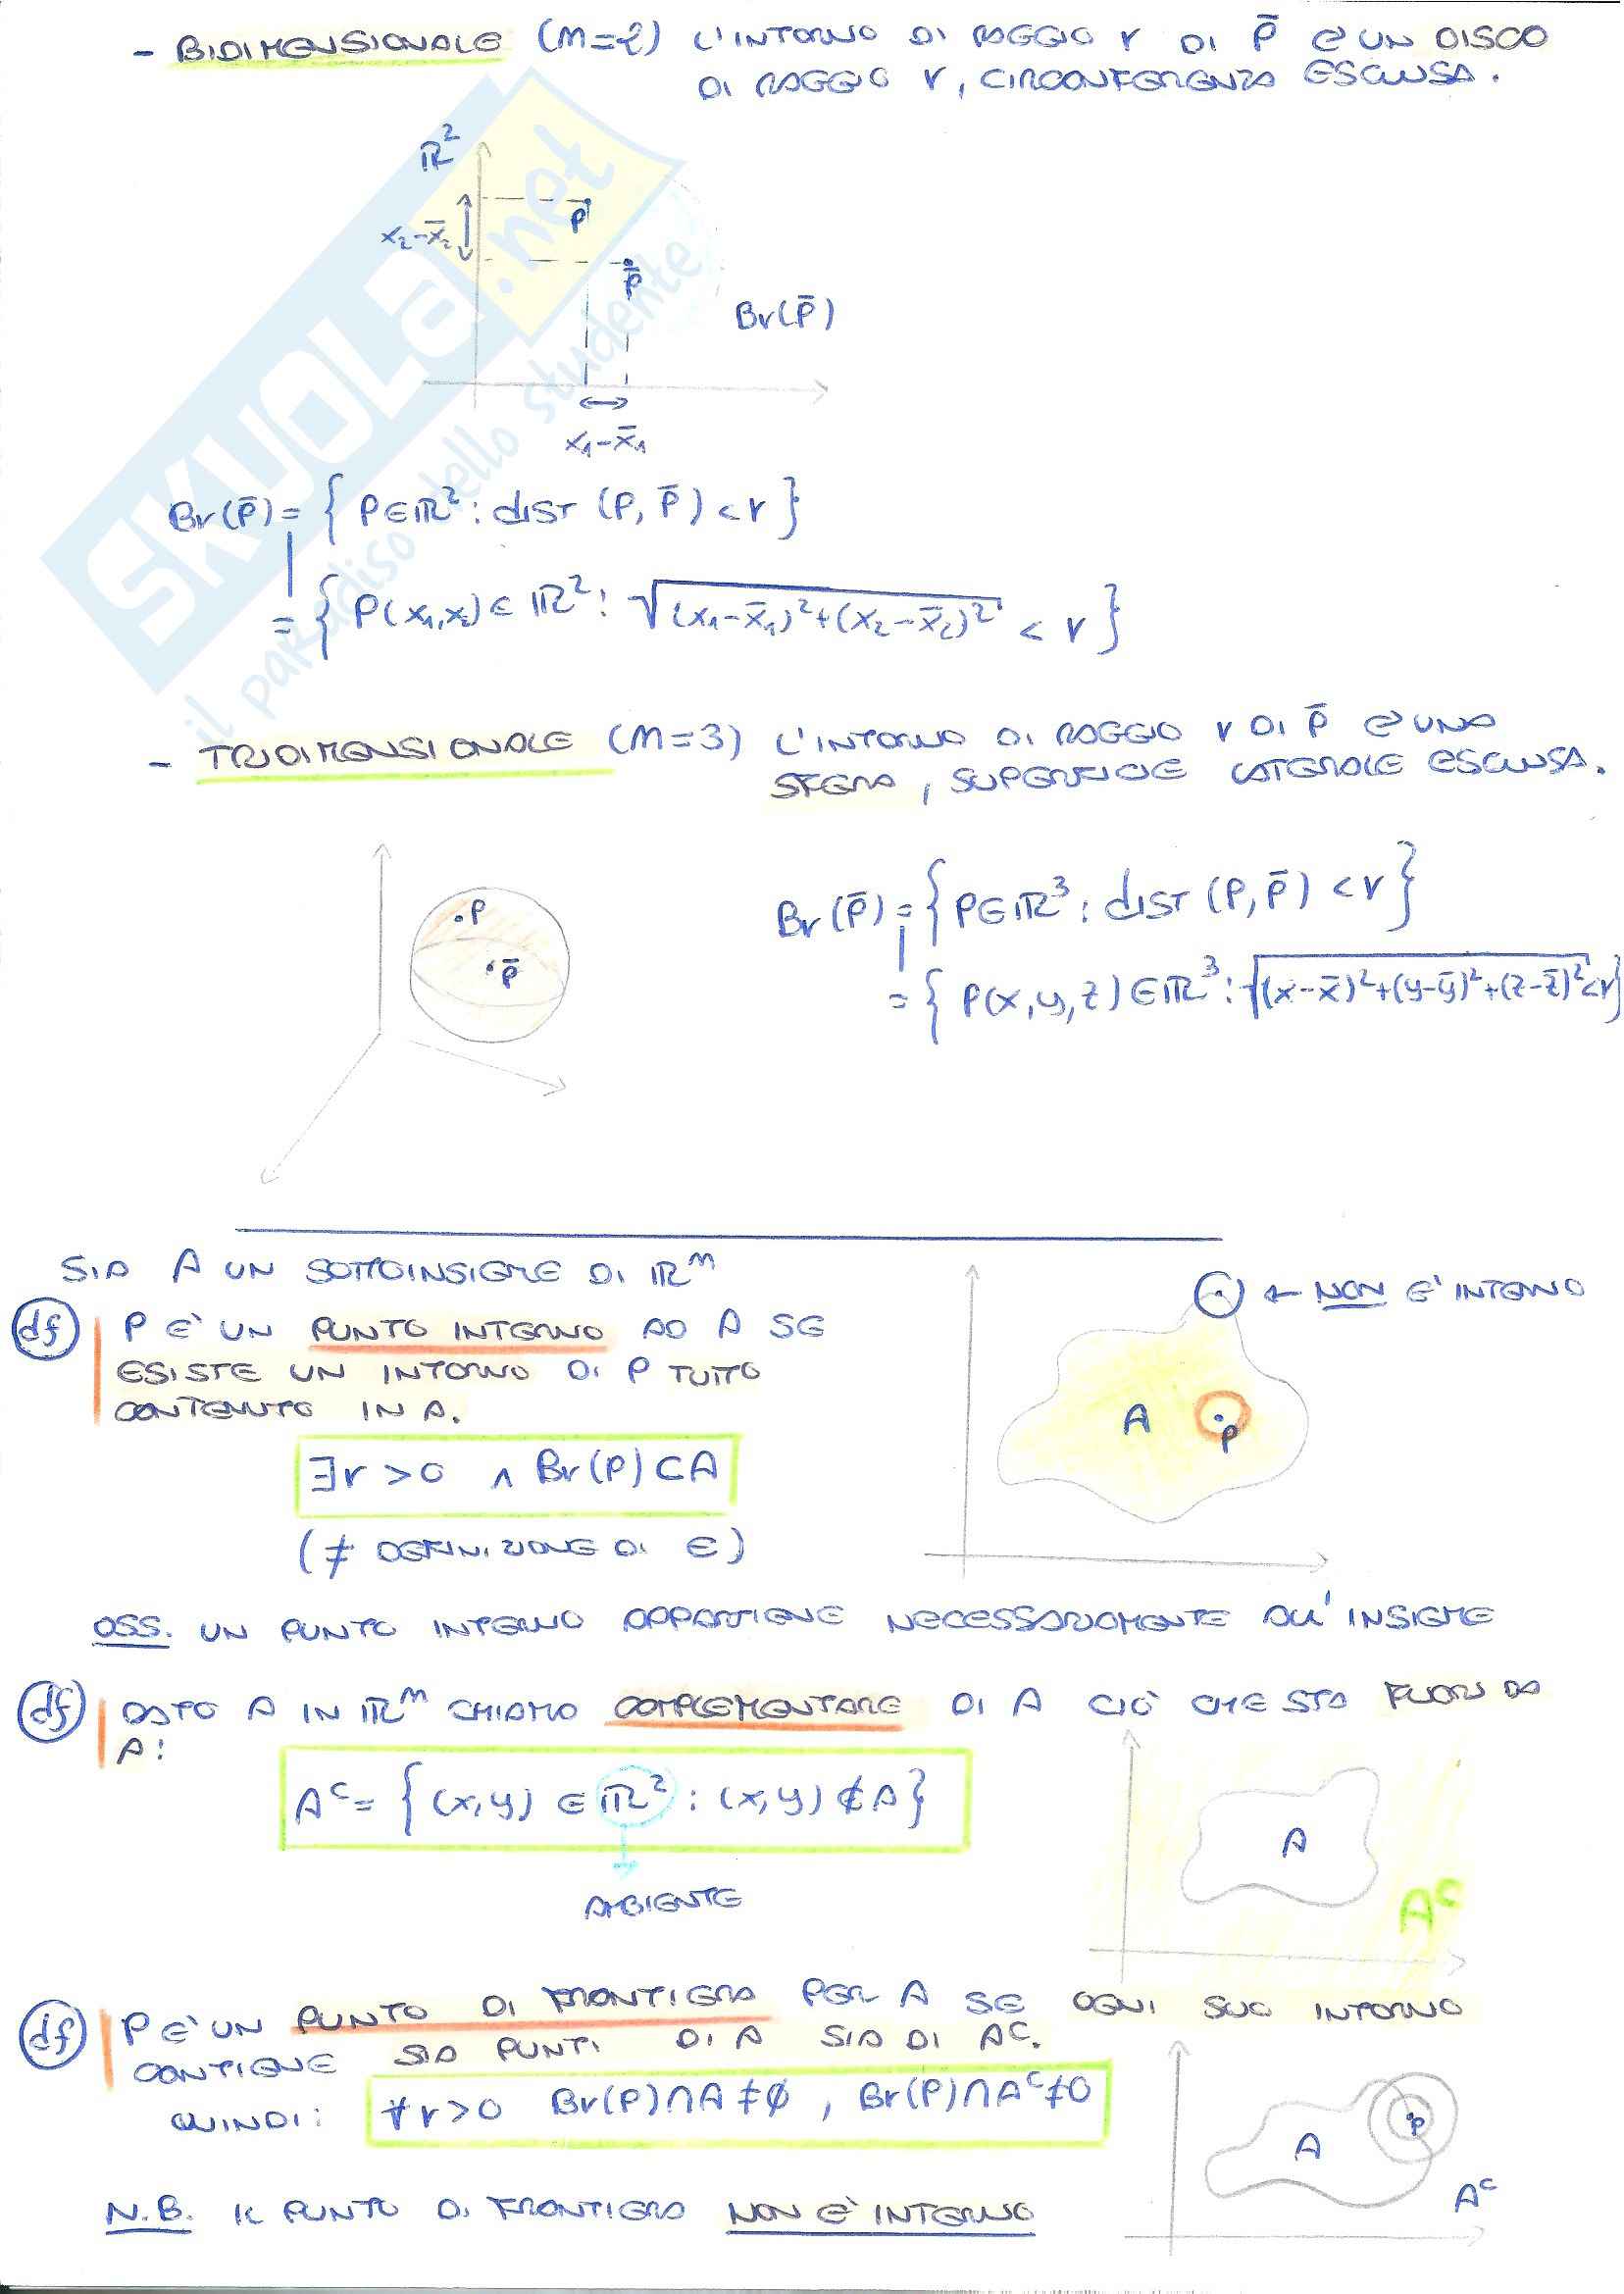 - BIDIMENSIONALE (M=2) L'INTORNO DI RAGGIO r DI P̄ È UN DISCO
DI RAGGIO r, CIRCONFERENZA ESCLUSA.
ℝ²
P
x₂-x̄₂
P̄
Br(P̄)
x₁-x̄₁
Br(P̄) = { P∈ℝ² : dist (P, P̄) < r }
= { P(x₁,x₂) ∈ ℝ² : √((x₁-x̄₁)²+(x₂-x̄₂)²) < r }
SKUOLa.net
il paradiso dello studente
- TRIDIMENSIONALE (M=3) L'INTORNO DI RAGGIO r DI P̄ È UNA
SFERA, SUPERFICIE LATERALE ESCLUSA.
P
P̄
Br(P̄) = { P∈ℝ³ : dist (P, P̄) < r }
= { P(x,y,z) ∈ℝ³ : √((x-x̄)²+(y-ȳ)²+(z-z̄)²) < r }
SIA A UN SOTTOINSIEME DI ℝᵐ
← NON E' INTERNO
df P E' UN PUNTO INTERNO AD A SE
ESISTE UN INTORNO DI P TUTTO
CONTENUTO IN A.
A
P
∃r >0 ∧ Br(P) ⊂ A
(≠ DEFINIZIONE DI ∈)
OSS. UN PUNTO INTERNO APPARTIENE NECESSARIAMENTE ALL'INSIEME
df DATO A IN ℝᵐ CHIAMO COMPLEMENTARE DI A CIÒ CHE STA FUORI DA
A:
Aᶜ = { (x,y) ∈ ℝ² : (x,y) ∉ A }
AMBIENTE
A
Aᶜ
df P E' UN PUNTO DI FRONTIERA PER A SE OGNI SUO INTORNO
CONTIENE SIA PUNTI DI A SIA DI Aᶜ.
QUINDI: ∀r>0 Br(P)∩A≠∅ , Br(P)∩Aᶜ≠0
A
P
Aᶜ
N.B. IL PUNTO DI FRONTIERA NON E' INTERNO